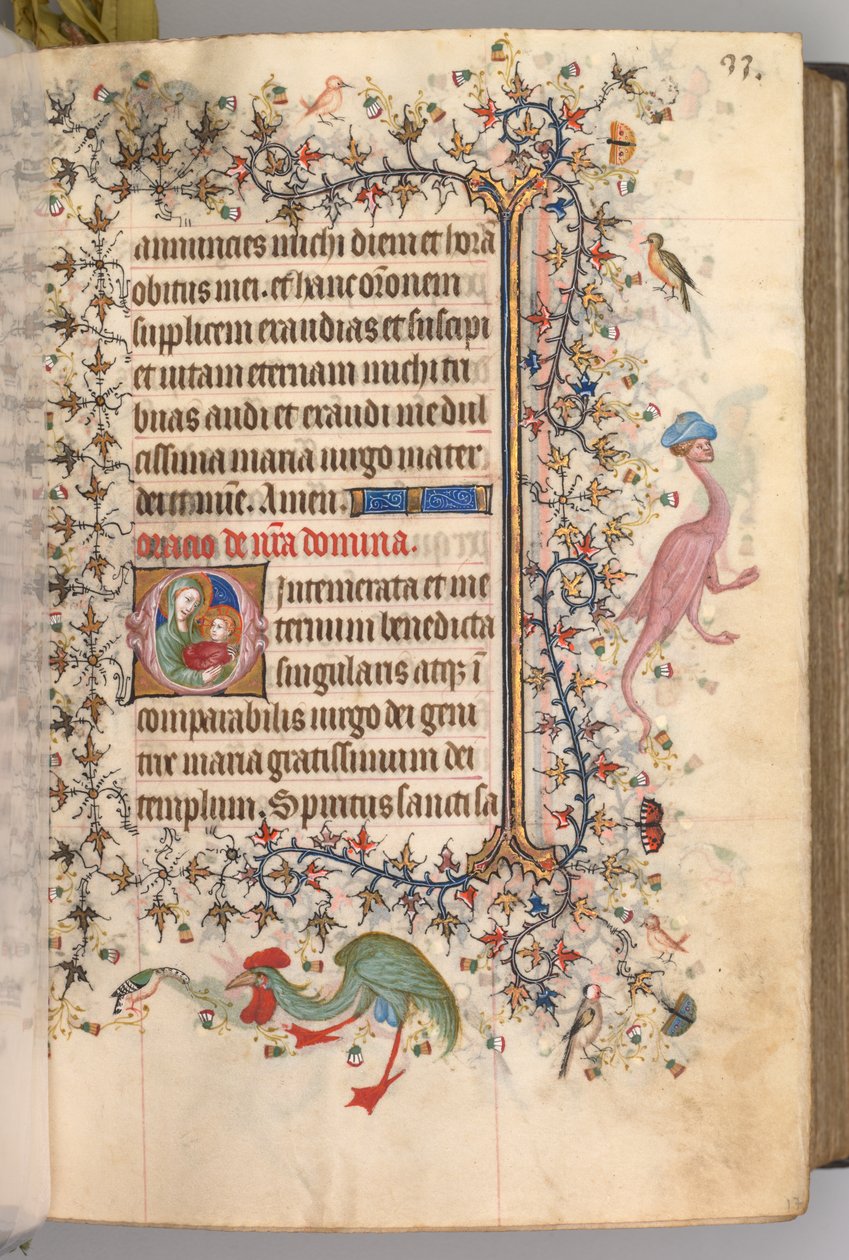 33.
annuncies michi diem et horā
obitus mei. et hanc orōnem
supplicem exaudias et suscipi
et vitam eternam michi tri
buas audi et exaudi me dul
cissima maria virgo mater
dei et mīe. Amen.
Oracio de nrā domina.
O Intemerata et in e
ternum benedicta
singularis atqꝫ ī
comparabilis virgo dei geni
trix maria gratissimum dei
templum. Spiritus sancti sa
17